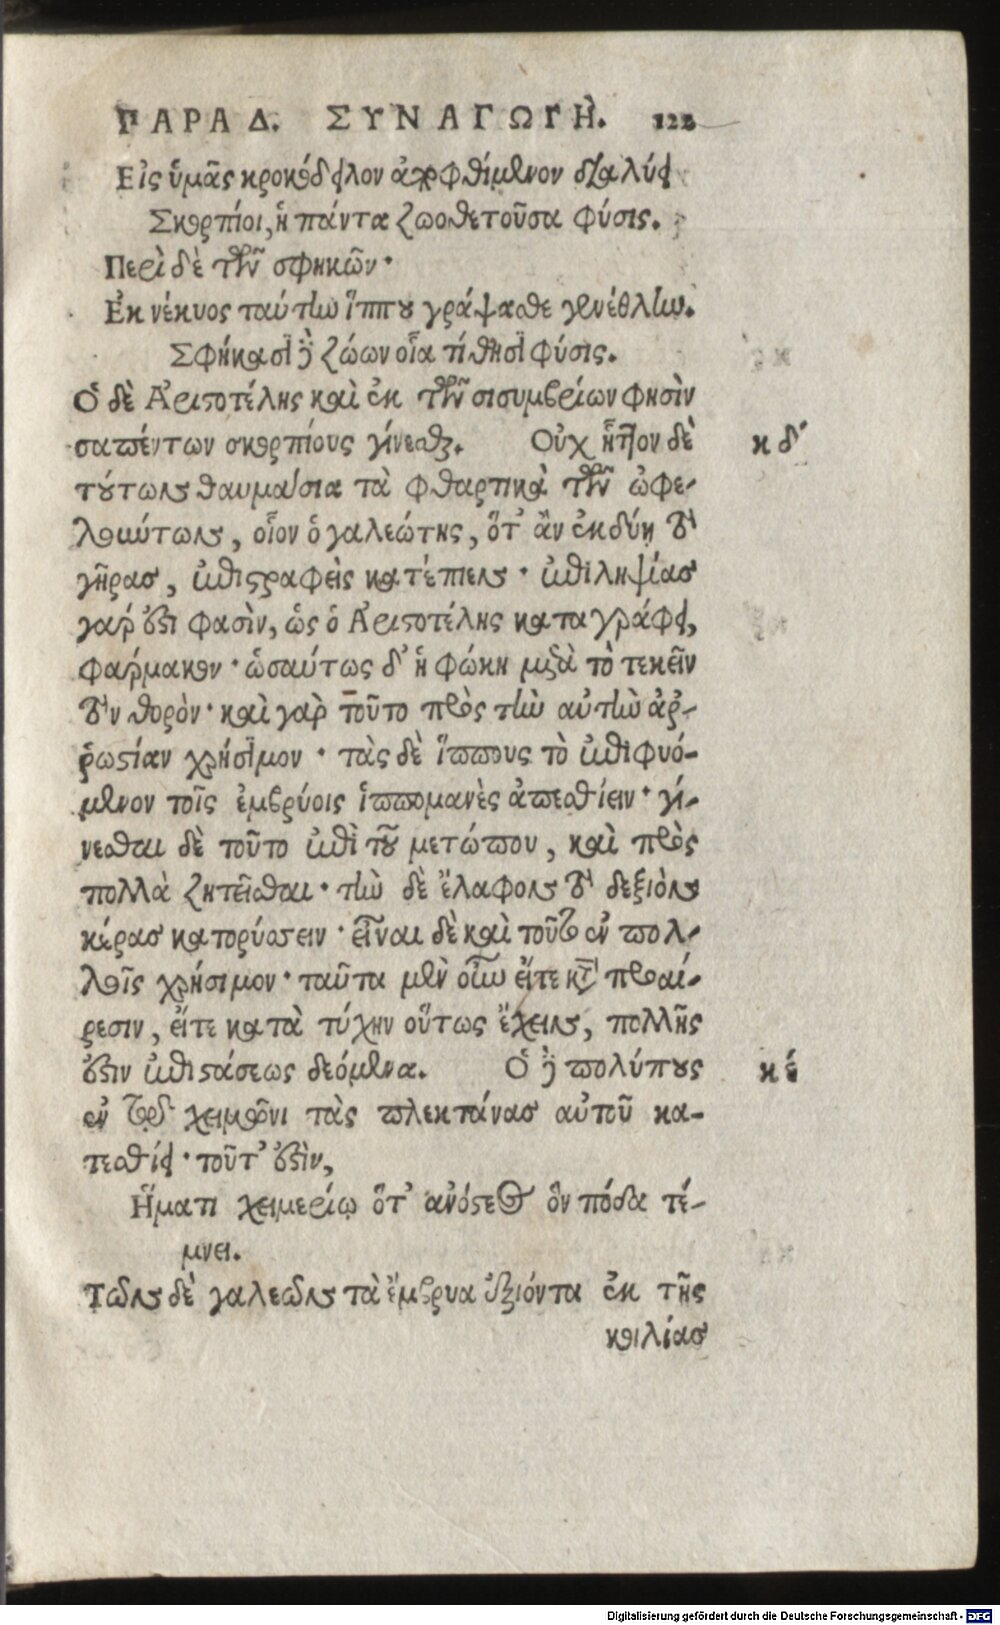 ΠΑΡΑΔ. ΣΥΝΑΓΩΓῊ. 122
Εἰς ὑμᾶς κροκόδειλον ἀποφθίμενον διαλύει
Σκορπίοι, ἡ πάντα ζωοθετοῦσα φύσις.
Περὶ δὲ τῶν σφηκῶν·
Ἐκ νέκυος ταύτην ἵππου γράψασθε γενέθλην.
Σφήκας· ἴδ' ἐξ οἵων οἷα τίθησι φύσις.
Ὁ δὲ Ἀριστοτέλης καὶ ἐκ τῶν σισυμβρίων φησὶν
σαπέντων σκορπίους γίνεσθαι. Οὐχ ἧττον δὲ
κδ´
τούτων θαυμάσια τὰ φθαρτικὰ τῶν ὠφε-
λούντων, οἷον ὁ γαλεώτης, ὅτ' ἂν ἐκδύῃ τὸ
γῆρας, ἐπιστραφεὶς κατέπιεν· ἐπιληψίας
γάρ ἐστι φασὶν, ὡς ὁ Ἀριστοτέλης καταγράφει,
φάρμακον· ὡσαύτως δ' ἡ φώκη μετὰ τὸ τεκεῖν
τὸν θορόν· καὶ γὰρ τοῦτο πρὸς τὴν αὐτὴν ἀῤ-
ῥωστίαν χρήσιμον· τὰς δὲ ἵππους τὸ ἐπιφυό-
μενον τοῖς ἐμβρύοις ἱππομανὲς ἀπεσθίειν· γί-
νεσθαι δὲ τοῦτο ἐπὶ τοῦ μετώπου, καὶ πρὸς
πολλὰ ζητεῖσθαι· τὴν δὲ ἔλαφον τὸ δεξιὸν
κέρας κατορύσσειν· εἶναι δὲ καὶ τοῦτο ἐν πολ-
λοῖς χρήσιμον· ταῦτα μὲν οὖν εἴτε κατὰ προαί-
ρεσιν, εἴτε κατὰ τύχην οὕτως ἔχειν, πολλῆς
ἐστιν ἐπιστάσεως δεόμενα. Ὁ δὲ πολύπους
κέ
ἐν τῷ χειμῶνι τὰς πλεκτάνας αὐτοῦ κα-
τεσθίει· τοῦτ' ἐστὶν,
Ἤματι χειμερίῳ ὅτ' ἀνόστεος ὃν πόδα τέ-
μνει.
Τὸν δὲ γαλεὸν τὰ ἔμβρυα ἐξιόντα ἐκ τῆς
κοιλίας
Digitalisierung gefördert durch die Deutsche Forschungsgemeinschaft - DFG